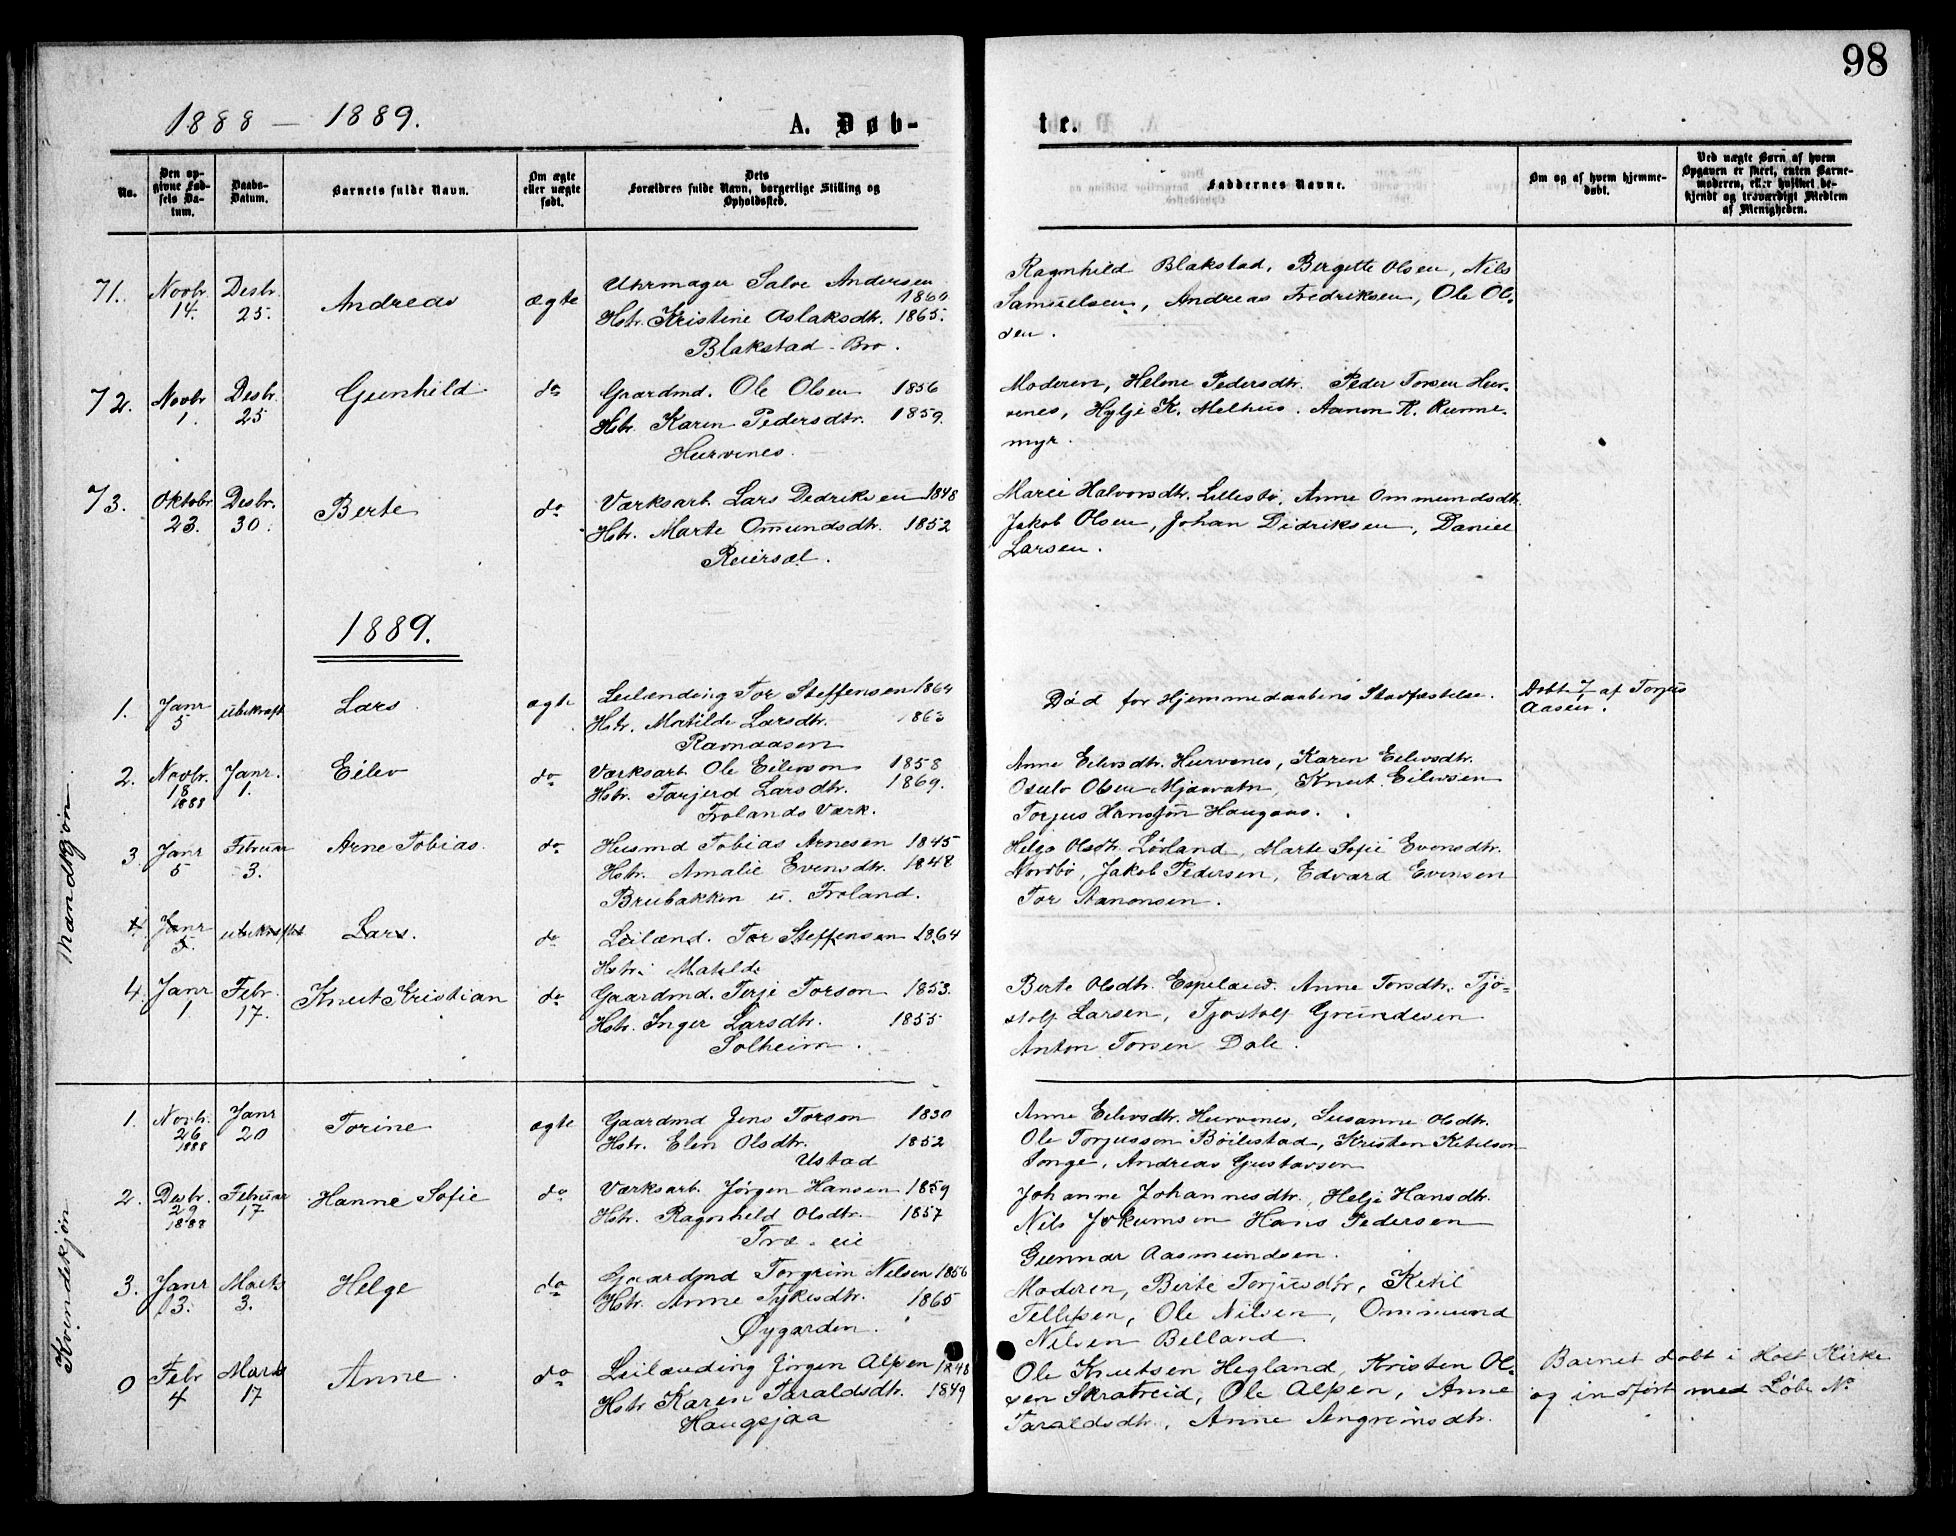 98
1888 — 1889.
A. Døb-
te.
No.
Den op-
givne Fød-
sels Da-
tum.
Daabs-
Datum.
Barnets fulde Navn.
Om ægte
eller uægte
født.
Dets
Forældres fulde Navn, borgerlige Stilling og
Opholdssted.
Faddernes Navne.
Om og af hvem hjemme-
døbt.
Ved uægte Børn af hvem
Opgaven er skeet, enten Barne-
moderen, eller hvilket be-
kjendt og troværdigt Medlem
af Menigheden.
71. Novbr. 14. Desbr. 25. Andreas ægte
Uhrmager Salve Andersen 1860
Hstr. Kristine Aslaksdtr. 1865.
Blakstad-Bro.
Ragnhild Blakstad, Bergette Olsen, Nils
Samuelsen, Andreas Fredriksen, Ole Ol-
sen.
72. Novbr 1. Desbr. 25 Gunhild do
Gaardmd. Ole Olsen 1856
Hstr. Karen Pedersdtr. 1859.
Hurvenes.
Moderen, Helene Pedersdtr. Peder Torsen Hur-
venes, Hylje K. Melhus. Aanon K. Runne-
myr.
73. Oktobr 23. Desbr. 30. Berte do
Værksarb. Lars Dedriksen 1848
Hstr. Marte Omundsdtr. 1852
Reiersøl.
Marei Halvorsdtr. Lillestø, Anne Ommundsdtr.
Jakob Olsen, Johan Didriksen, Daniel
Larsen.
1889.
Mandkjøn.
1. Janr 5 ubekræft Lars ægte
Leilænding Tor Steffensen 1864
Hstr. Matilde Larsdtr. 1863
Ravnaasen
Død før Hjemmedaabens Stadfæstelse.
Døbt 7/1 af Torjus
Aasen.
2. Novbr. 18 1888 Janr. 1. Eilev do
Værksarb. Ole Eilevson 1858
Hstr. Tarjerd Larsdtr. 1869.
Frolands Værk.
Anne Eilevsdtr. Hurvenes, Karen Eilevsdtr.
Osulv Olsen Mjaavatn, Knut Eilevsen
Torjus Hansson Haugaas.
3. Janr 5 Februar 3. Arne Tobias. do
Husmd Tobias Arnesen 1845
Hstr. Amalie Evensdtr. 1848
Brubakken u. Froland.
Helje Olsdtr. Løvland, Marte Sofie Evensdtr.
Nordbø, Jakob Pedersen, Edvard Evensen
Tor Aanonsen.
4 Janr 5. ubekræftet Lars. do
Leilænd. Tor Steffensen 1864
Hstr. Matilde
4. Janr 1 Febr. 17. Knut Kristian do
Gaardmd. Terje Torson 1853.
Hstr. Inger Larsdtr. 1855
Solheim.
Berte Olsdtr. Espeland. Anne Torsdtr. Tjø-
stolf Larsen, Tjøstolf Grundesen
Anton Torsen Dale.
Kvindekjøn.
1. Novbr. 26 1888 Janr 20 Torine ægte
Gaardmd Jens Torson 1830
Hstr. Elen Olsdtr. 1852
Ustad
Anne Eilevsdtr. Hurvenes, Susanne Olsdtr.
Ole Torjusson Bøilestad, Kristen Ketilson
Songe, Andreas Gustavsen
2. Desbr. 29 1888 Februar 17 Hanne Sofie do
Værksarb. Jørgen Hansen 1859
Hstr. Ragnhild Olsdtr. 1857
Træ-eie
Johanne Johannesdtr., Helje Hansdtr.
Nils Jokumsen Hans Pedersen
Gunnar Aasmundsen.
3. Janr 13. Marts 3. Helge do
Gaardmd Torgrim Nilsen 1856
Hstr. Anne Tykesdtr. 1865
Øygarden.
Moderen, Berte Torjusdtr, Ketil
Tellefsen, Ole Nilsen, Ommund
Nilsen Belland.
0 Febr 4 Marts 17 Anne. do
Leilænding Jørgen Alfsen 1848
Hstr Karen Taraldsdtr. 1849
Haugsjaa
Ole Knutsen Hegland, Kristen Ol-
sen Skratreid, Ole Alfsen, Anne
Taraldsdtr., Anne Angrimsdtr.
Barnet døbt i Holt Kirke
og indført med Løbe No